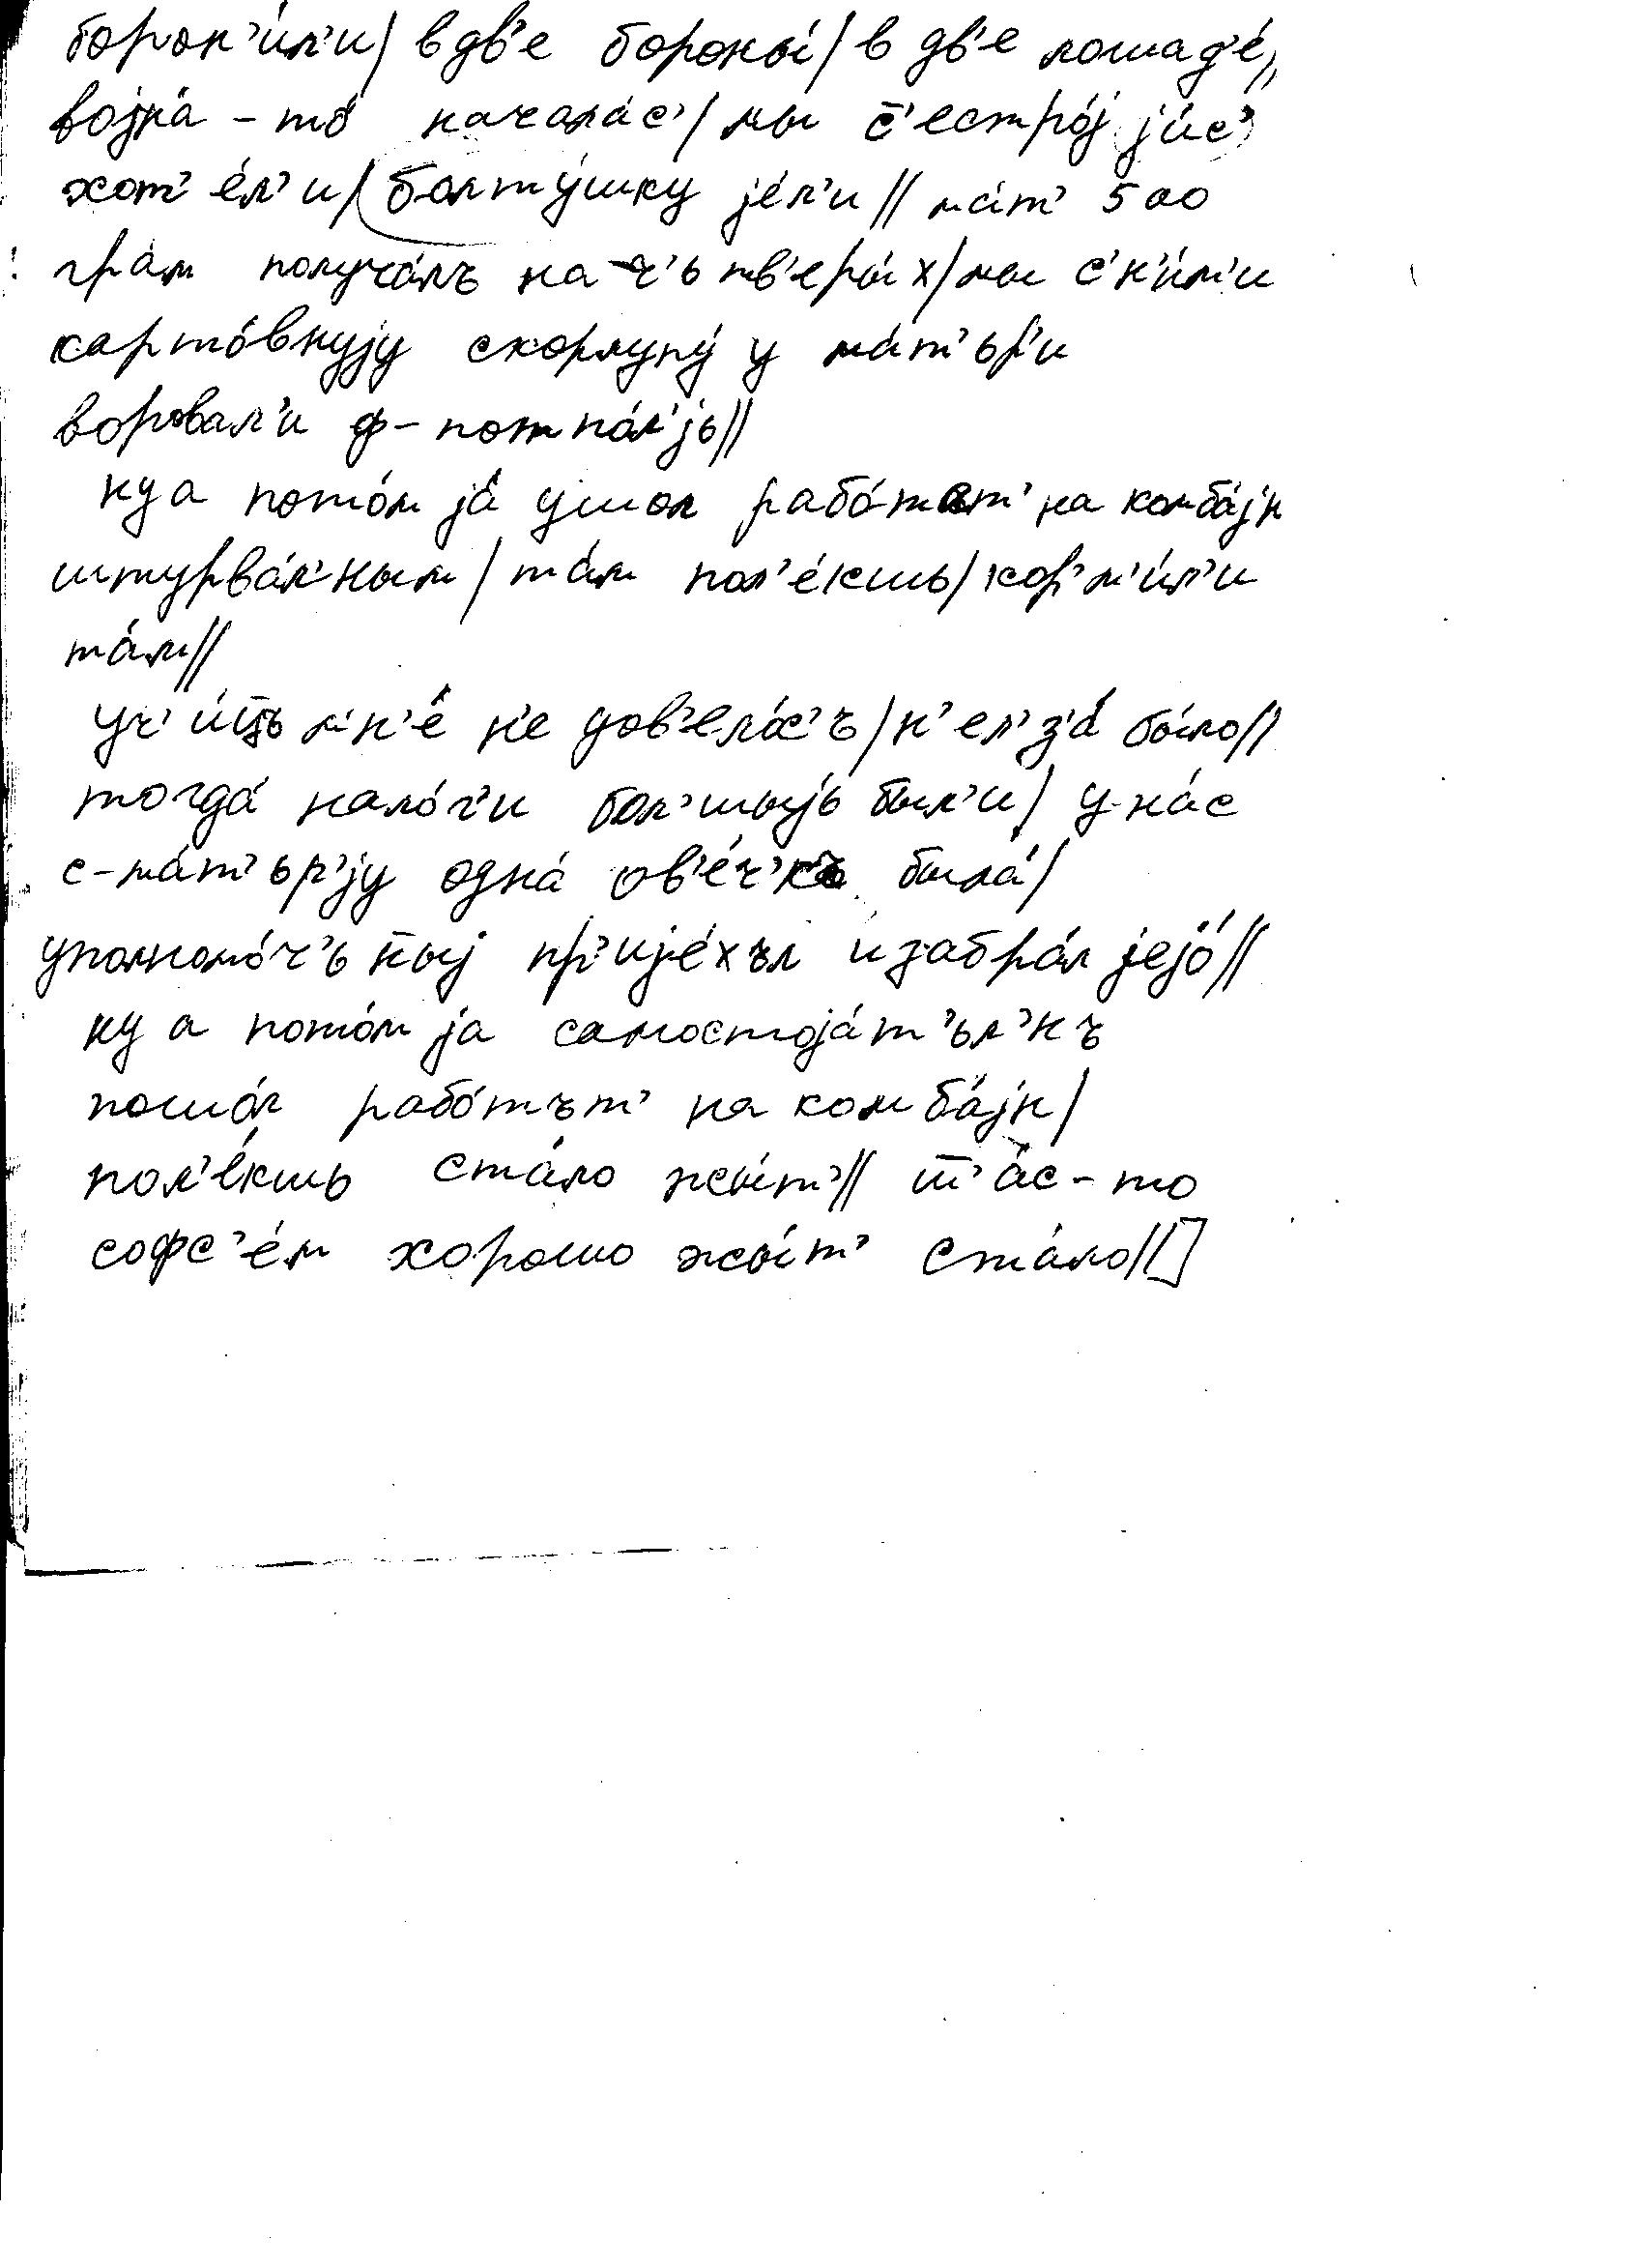 борон'и́л'и/ в дв'е бороны́/ в дв'е лошад'е́//
војна́-то́ начала́с'/ мы с̄'естро́ј јис'
хот'е́л'и/ болту́шку је́л'и// ма́т' 500
гра́м получа́лъ на ч'ьтв'еры́х/ мы с'н'и́м'и
карто́внују скорлупу́ у ма́т'ьр'и
воровал'и ф-потпо́л'јь//
ну а пото́м ја́ ушол рабо́тът' на комба́јн
штурва́л'ным/ та́м пол'е́кшь/ кор'м'и́л'и
та́м//
уч'и́ц̄ъ мн'е́ н'е дов'ело́с'ъ/ н'ел'з'а́ бы́ло//
тогда́ нало́г'и бол'шыјь был'и/ у-на́с
с-ма́т'ьр'јју одна́ ов'е́ч'къ была́/
уполномо́ч'ьн̄ыј пр'ије́хъл и забра́л јејо́//
ну а пото́м ја самостоја́т'ьл'нъ
пошо́л рабо́тът' на комба́јн/
пол'е́кшь ста́ло жы́т'// т̄'ас-то
софс'е́м хорошо жы́т' ста́ло//]